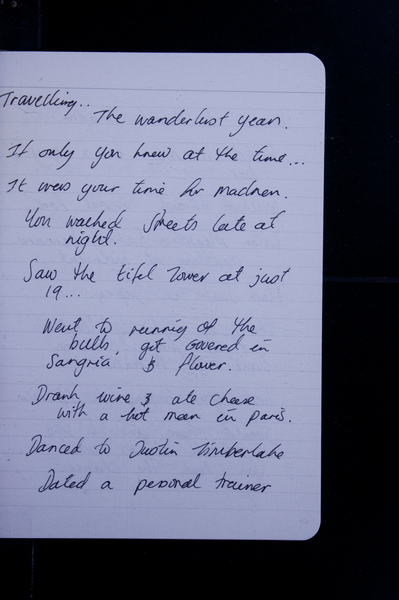 Travelling..
The wanderlust years.
If only you knew at the time...
It was your time for madness.
You walked streets late at
night.
Saw the eifel tower at just
19...
Went to running of the
bulls, got covered in
Sangria & flower.
Drank wine & ate cheese
with a hot man in paris.
Danced to Justin Timberlake
Dated a personal trainer